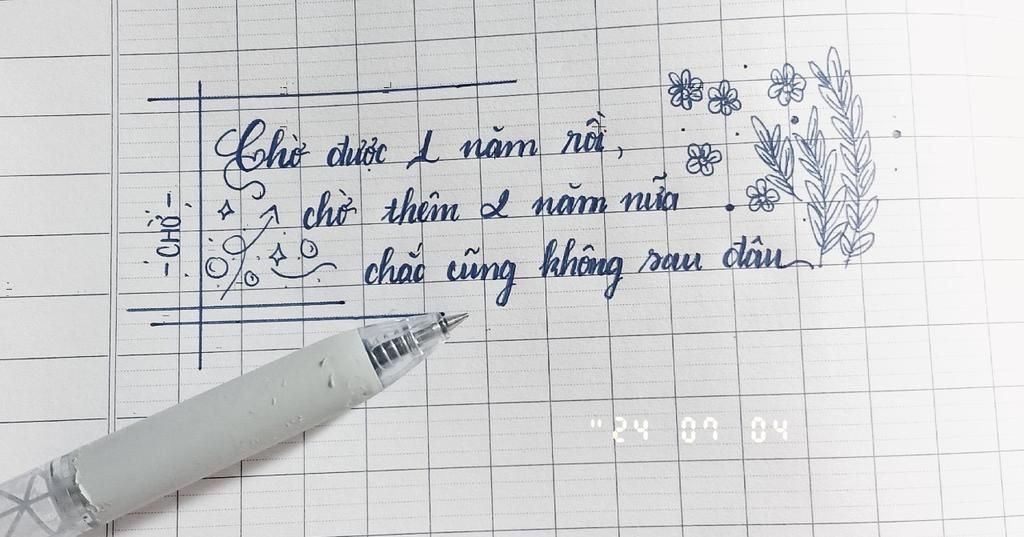 Chờ được 1 năm rồi,
chờ thêm 2 năm nữa
chắc cũng không sau đâu
-CHỜ-
"24 07 04